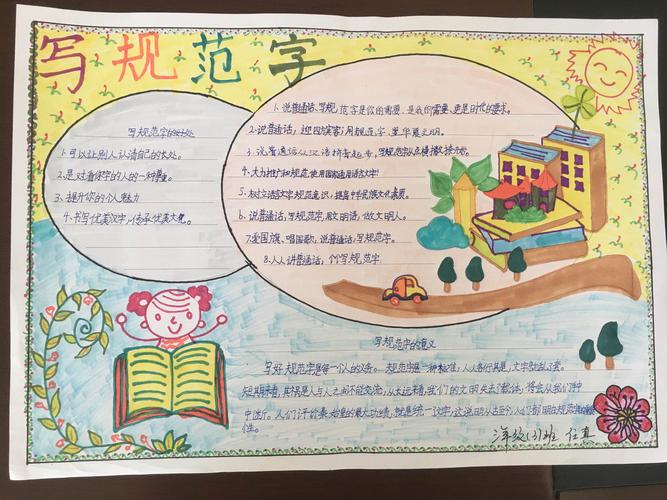 写规范字
写规范字的好处
1.可以让别人认清自己的长处。
2.是对看你字的人的一种尊重。
3.提升你的个人魅力
4.书写优美汉字,传承优美文
1.说普通话、写规范字是你的需要、是我的需要、更是时代的要求。
2.说普通话,迎四方宾客;用规范字,
3.说普通话从汉语拼音起步,写规范字从点横撇捺
4.大力推广和规范使用国家通用语言文字!
5.树立语言文字规范意识,提高中华民族文化素质。
6.说普通话,写规范字,做文明人。
7.爱国旗、唱国歌,说普通话,写规范字。
8.人人讲普通话,们写规范字.
写规范字的意义
写好规范字是每个人的义务。规范是一种标准,人人各行其是,文字就乱了套。
短期来看,其后果是人与人之间不能交流,从长远来看,我们的文明失去了载体,将会从我们
中断。人们评价秦始皇的最大功绩,就是统一汉字,这说明从古至今,人们都明白规范字的
性。
三年级(3)班 任真